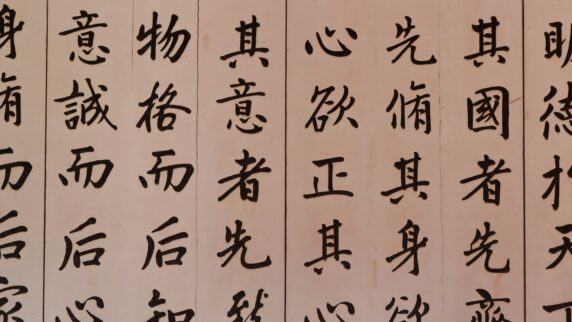 明德扵天下
其國者先齊
先脩其身欲
心欲正其心
其意者先致
物格而后知
意誠而后心
身脩而后家